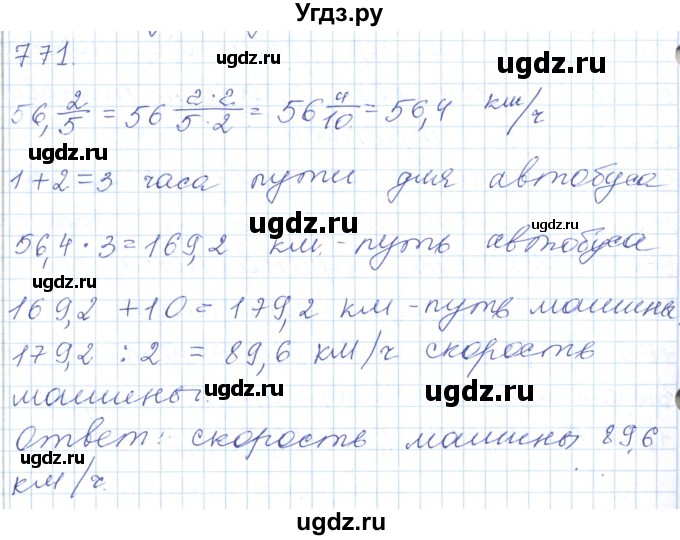 Угдз.ру
771.
56,2/5 = 56 2·2/5·2 = 56 4/10 = 56,4 км/ч
1+2=3 часа пути для автобуса
56,4 · 3 = 169,2 км. - путь автобуса
169,2 + 10 = 179,2 км - путь машины.
179,2 : 2 = 89,6 км/ч скорость
машины.
Ответ: скорость машины 89,6
км/ч.
ugdz.ru
ugdz.ru
ugdz.ru
ugdz.ru
ugdz.ru
ugdz.ru
ugdz.ru
ugdz.ru
ugdz.ru
ugdz.ru
ugdz.ru